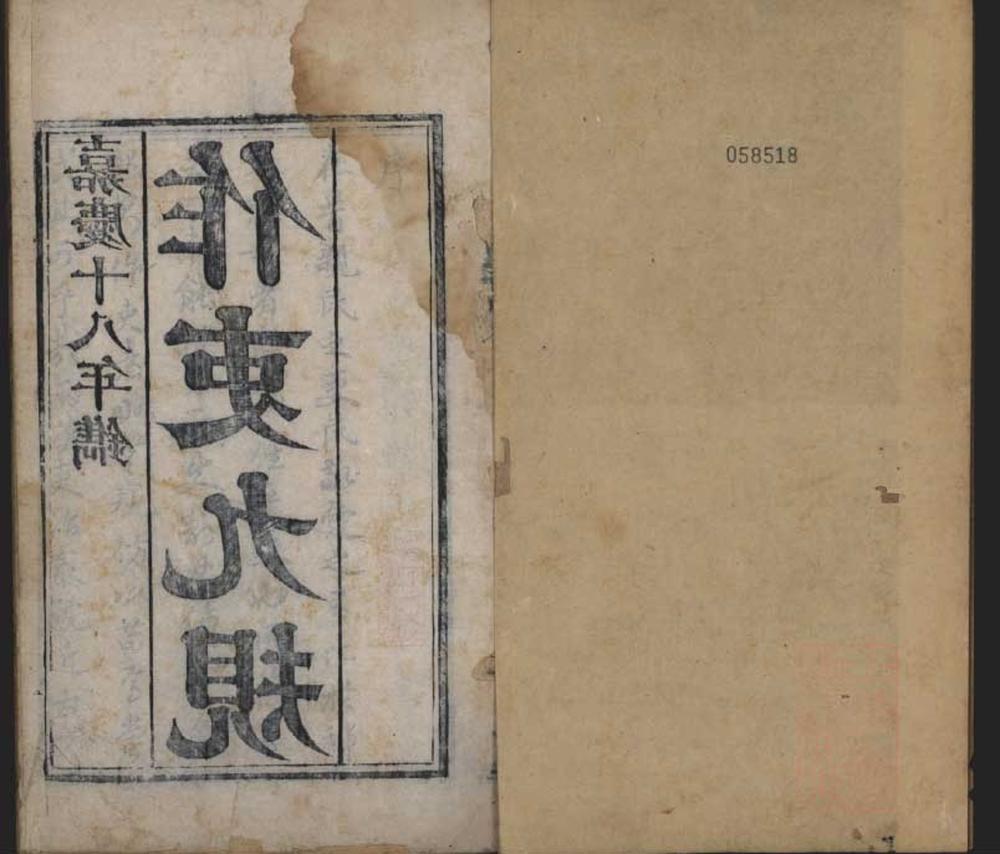 058518
作吏九規
嘉慶十八年鐫